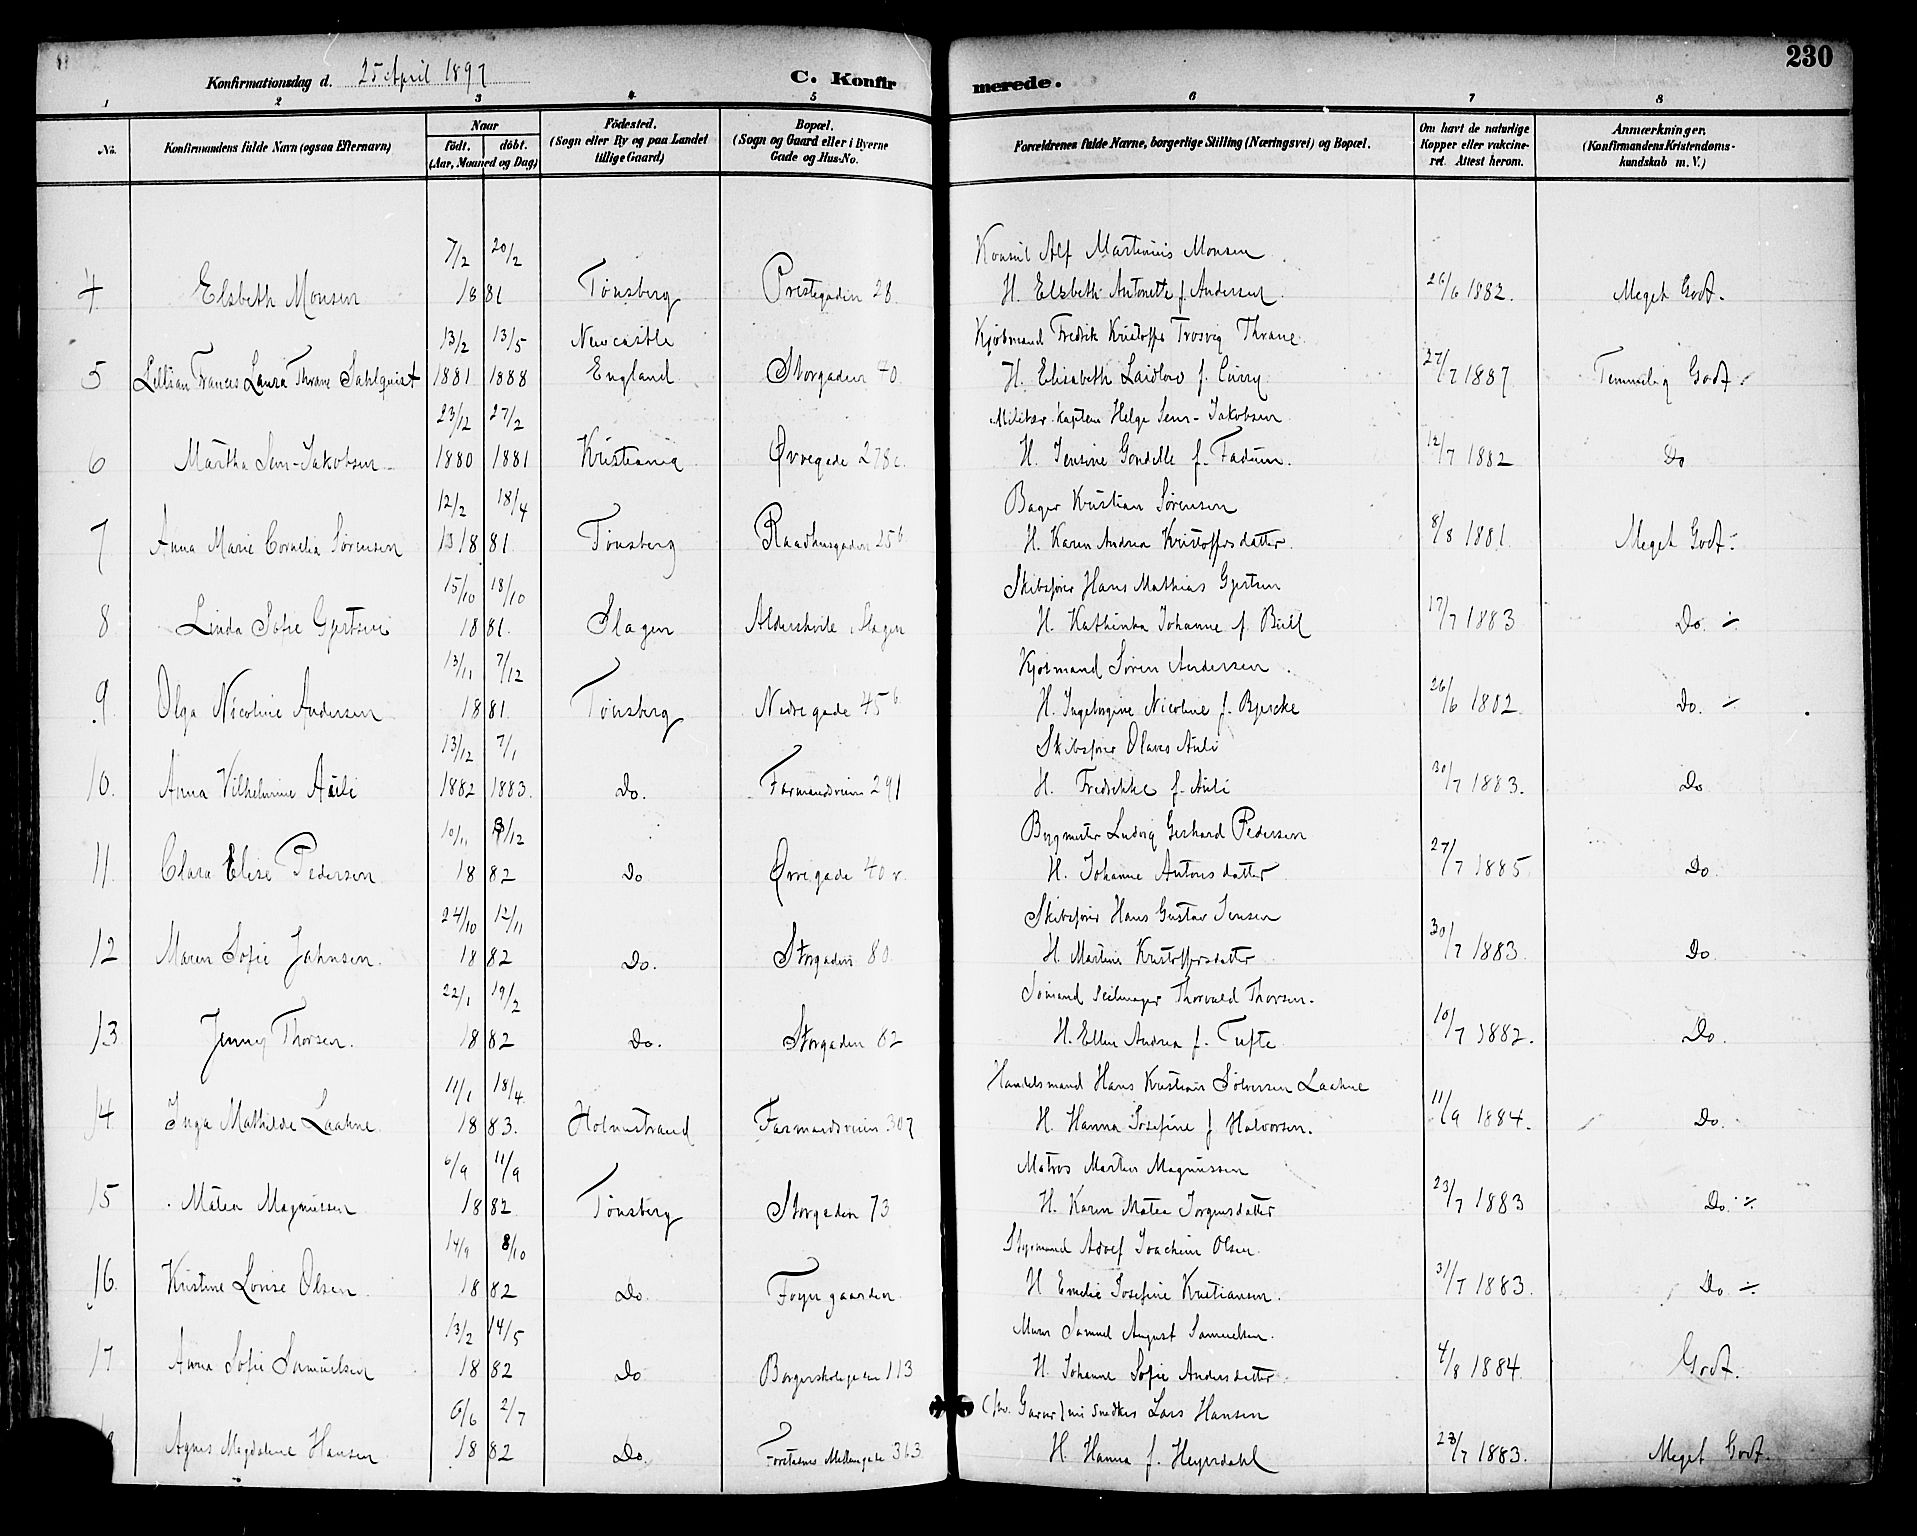 230
Konfirmationsdag d. 25 April 1897
C. Konfirmerede.
1 2 3 4 5 6 7 8
No. Konfirmandens fulde Navn (ogsaa Efternavn) Naar födt. döbt. (Aar, Maaned og Dag) Födested. (Sogn eller By og paa Landet tillige Gaard) Bopæl. (Sogn og Gaard eller i Byerne Gade og Hus-No. Forældrenes fulde Navne, borgerlige Stilling (Næringsvei) og Bopæl. Om havt de naturlige Kopper eller vakcineret. Attest herom. Anmærkninger. (Konfirmandens Kristendomskundskab m. V.)
7/2 20/2 Konsul Alf Martinius Monsen
4 Elsbeth Monsen 1881 Tønsberg Prestegaden 28. H. Elsbeth Antonette f. Andersen 26/6 1882. Meget Godt.
13/2 13/5 Newcastle Kjøbmand Fredrik Kristoffer Trosvig Thrane
5 Lillian Frances Laura Thrane Sahlquist 1881 1888 England Storgaden 70 H. Elisabeth Laidlow f. Curry 27/7 1887 Temmelig Godt
23/12 27/2 Militær Kaptein Helge Sem-Jakobsen
6 Martha Sem-Jakobsen 1880 1881 Kristiania Øvregade 278c H. Jensine f. Fadum. 12/7 1882 Do
12/2 18/4 Bager Kristian Sørensen
7 Anna Marie Cornelia Sørensen 1881 Tønsberg Raadhusgaden 25b H. Karen Andrea Kristoffersdatter 8/8 1881 Meget Godt
15/10 18/10 Skibsfører Hans Mathias Gjertsen
8 Linda Sofie Gjertsen 1881. Slagen Aldershvile, Slagen H. Kathinka Johanne f. Bull 17/7 1883 Do. ÷
13/11 7/12 Kjøbmand Søren Andersen
9. Olga Nicoline Andersen 1881. Tønsberg Nedregade 45b H. Ingeborgine Nicoline f. Bjercke 26/6 1882. Do. ÷
13/12 7/1 Skibsfører Olaves Auli
10. Anna Vilhelmine Auli 1882 1883. Do. Farmandsveien 291 H. Fredrikke f. Auli 30/7 1883. Do
10/11 /12 Ludvig Gerhard Pedersen
11. Clara Elise Pedersen 1882 Do Øvregade 40 H. Johanne Antonsdatter 27/7 1885 Do.
24/10 12/11 Skibsfører Hans Gustav Jensen
12 Maren Sofie Jahnsen. 1882 Do. Storgaden 80 H. Martine Kristoffersdatter 30/7 1883. Do
22/1 19/2 Sømand Seilmager Thorvald Thorsen.
13 Jenny Thorsen. 1882 Do. Storgaden 62 H. Ellen Andrea f. Tufte 10/7 1882. Do.
11/1 18/4 Handelsmand Hans Kristian Sølversen Laahne
14. Inga Mathilde Laahne 1883. Holmestrand Farmandsveien 307 H. Hanna Josefine f Halvorsen. 11/9 1884. Do.
6/9 11/9 Matros Morten Magnussen
15 Matea Magnussen 1882 Tønsberg Storgaden 73 H. Karen Matea Jørgensdatter 23/7 1883 Do. ÷
14/9 8/10 Styrmand Adolf Joachim Olsen
16. Kristine Lovise Olsen 1882 Do Foyn gaarden H Emelie Josefine Kristiansen. 31/7 1883. Do ÷
13/2 14/5 Murer Samuel August Samuelsen.
17 Anna Sofie Samuelsen 1882 Do Borgerskolegaden 113 H. Johanne Sofie Andersdatter 4/8 1884. Godt.
6/6 2/7 Snedker Lars Hansen
Agnes Magdalene Hansen 1882 Do. Mellemgade 363 H. Hanna f. Heyerdahl 28/7 1883. Meget Godt.